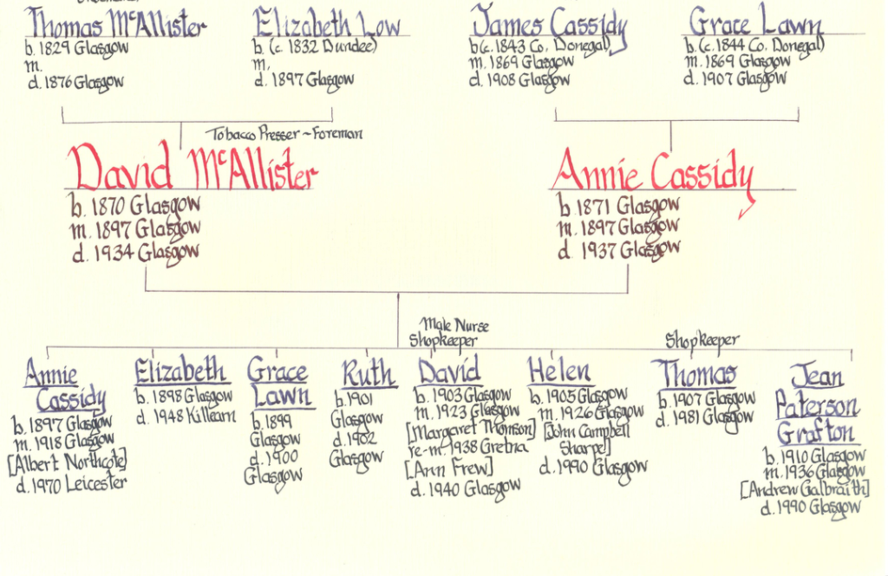 Thomas McAllister
b. 1829 Glasgow
m.
d. 1876 Glasgow
Elizabeth Low
b. (c. 1832 Dundee)
m.
d. 1897 Glasgow
James Cassidy
b(c. 1843 Co. Donegal)
m. 1869 Glasgow
d. 1908 Glasgow
Grace Lawn
b. (c. 1844 Co. Donegal)
m. 1869 Glasgow
d. 1907 Glasgow
Tobacco Presser ~ Foreman
David McAllister
b. 1870 Glasgow
m. 1897 Glasgow
d. 1934 Glasgow
Annie Cassidy
b. 1871 Glasgow
m. 1897 Glasgow
d. 1937 Glasgow
Annie
Cassidy
b. 1897 Glasgow
m. 1918 Glasgow
[Albert Northcote]
d. 1970 Leicester
Elizabeth
b. 1898 Glasgow
d. 1948 Killearn
Grace
Lawn
b. 1899
Glasgow
d. 1900
Glasgow
Ruth
b. 1901
Glasgow
d. 1902
Glasgow
Male Nurse
Shopkeeper
David
b. 1903 Glasgow
m. 1923 Glasgow
[Margaret Thomson]
re-m. 1938 Gretna
[Ann Frew]
d. 1940 Glasgow
Helen
b. 1905 Glasgow
m. 1926 Glasgow
[John Campbell
Sharpe]
d. 1990 Glasgow
Shopkeeper
Thomas
b. 1907 Glasgow
d. 1981 Glasgow
Jean
Paterson
Grafton
b. 1910 Glasgow
m. 1936 Glasgow
[Andrew Galbraith]
d. 1990 Glasgow